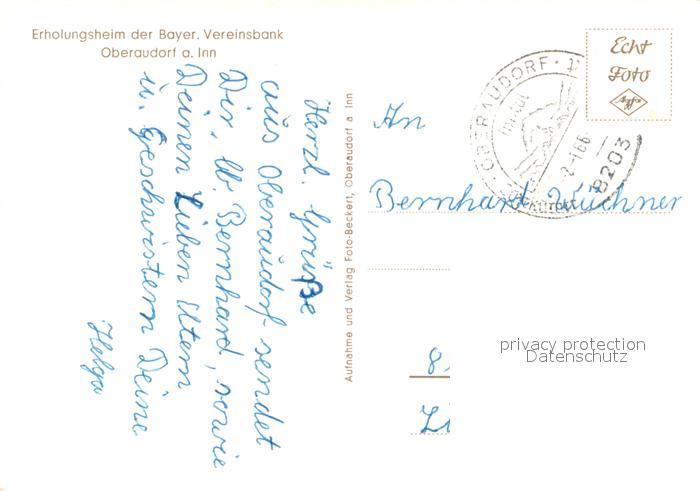 Erholungsheim der Bayer. Vereinsbank
Oberaudorf a. Inn
Herzl. Grüße
aus Oberaudorf sendet
Dir, lb. Bernhard, sowie
Deinen lieben Eltern
u. Geschwistern Deine
Helga
Aufnahme und Verlag Foto-Beckert, Oberaudorf a Inn
Echt
Foto
Agfa
OBERAUDORF
8203
An
Bernhard Wüchner
privacy protection
Datenschutz